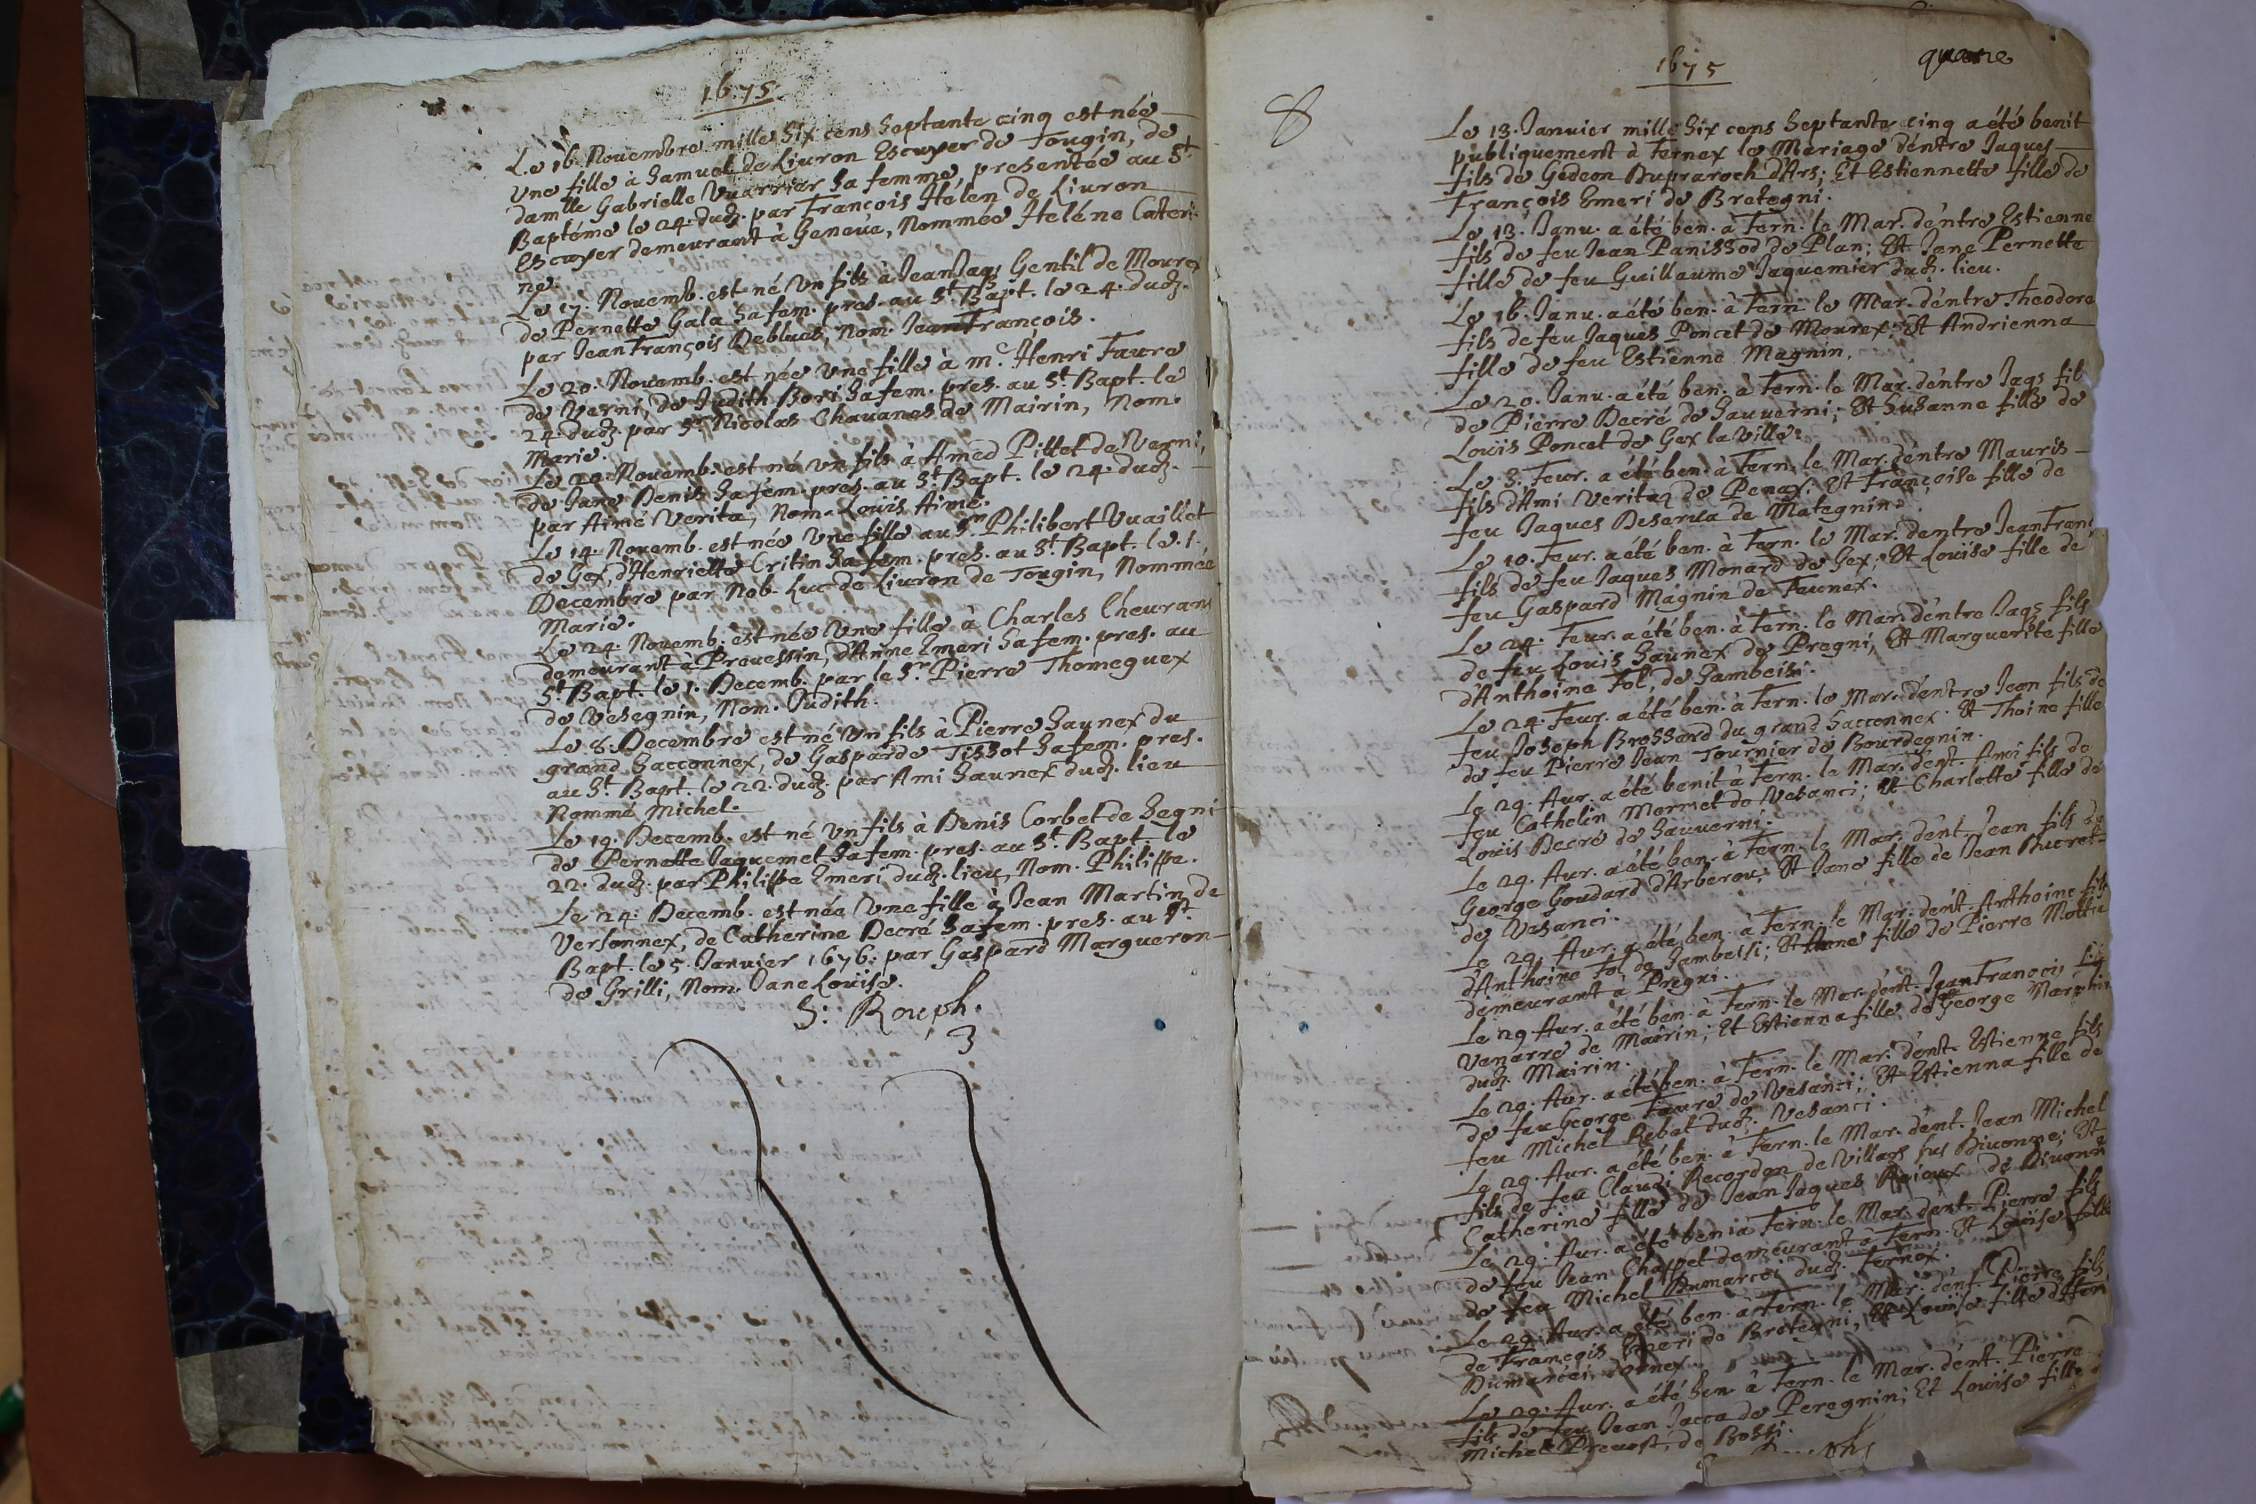 1675
Le 16. Nouembre mille six cens septante cinq est née
vne fille à Samuel de Liuron Escuyer de Tougin, de
damlle Gabrielle Vuarrier sa femme, presentée au St
Baptéme le 24. dudz. par François Hélen de Liuron
Escuyer demeurant à Genéue, Nommée Heléne Cateri-
ne.
Le 17. Nouemb. est né vn fils à Jean Jaqs Gentil de Mourex
de Pernette Gala sa fem. pres. au St. Bapt. le 24. dudz.
par Jean François Deblues, Nom. Jean François.
Le 20. Nouemb. est née vne fille à mr. Henri Faure
de Verni, de Judith Bori sa fem. pres. au St. Bapt. le
24. dudz. par Sr. Nicolas Chauanes de Mairin, Nom.
Marie.
Le Nouemb. est né vn fils à Amed Pillet de Verni,
de Jane Denis sa fem. pres. au St. Bapt. le 24. dudz.
par Aimé Verita, Nom. Louïs Aimé.
Le 14. Nouemb. est née vne fille au Sr. Philibert Vuaillet
de Gex, d'Henriette Critin sa fem. pres. au St. Bapt. le 1.
Decembre par Nob. Luc de Liuron de Tougin, Nommée
Marie.
Le 24. Nouemb. est née vne fille à Charles Cheurans
demeurant à Preuessin, d'Anne Emeri sa fem. pres. au
St. Bapt. le 1. Decemb. par le Sr. Pierre Thomeguex
de Vesegnin, Nom. Judith.
Le 8. Decembre est né vn fils à Pierre Saunex du
grand Sacconnex, de Gasparde Tissot sa fem. pres.
au St. Bapt. le 22. dudz. par Ami Saunex dudz. lieu
Nommé Michel.
Le 19. Decemb. est né vn fils à Denis Corbet de Segni
de Pernette Jaquemet sa fem. pres. au St. Bapt. le
22. dudz. par Philippe Emeri dudz. lieu, Nom. Philippe.
Le 24. Decemb. est née vne fille à Jean Martin de
Versonnex, de Catherine Decré sa fem. pres. au St.
Bapt. le 5. Januier 1676. par Gaspard Margueron
de Grilli, Nom. Jane Louïse.
S. Rouph.
8
1675
quare
Le 13. Januier mille six cens septante cinq a été benit
publiquement à Fernex le Mariage d'éntre Jaques
fils de Gédeon Dupraroch d'Ars; Et Estiennette fille de
François Emeri de Bretegni.
Le 13. Janu. a été ben. à Fern. le Mar. d'éntre Estienne
fils de feu Jean Panissod de Plan; Et Jane Pernette
fille de feu Guillaume Jaquemier dudz. lieu.
Le 16. Janu. a été ben. à Fern. le Mar. d'éntre Theodore
fils de feu Jaques Poncet de Mourex; Et Andrienna
fille de feu Estienne Magnin.
Le 20. Janu. a été ben. à Fern. le Mar. d'éntre Jaqs fils
de Pierre Decré de Sauuerni; Et Susanne fille de
Louïs Poncet de Gex la Ville.
Le 3. Feur. a été ben. à Fern. le Mar. d'éntre Mauris
fils d'Ami Veritaz de Penax; Et Françoise fille de
feu Jaques Deserua de Mategnin.
Le 10. Feur. a été ben. à Fern. le Mar. d'entre Jean Franc
fils de feu Jaques Monard de Gex; Et Louïse fille de
feu Gaspard Magnin de Feunex.
Le 24. Feur. a été ben. à Fern. le Mar. d'éntre Jaqs fils
de feu Louis Saunex de Pregni, Et Marguerite fille
d'Anthoine Fol, de Sambeisi.
Le 24. Feur. a été ben. à Fern. le Mar. d'éntre Jean fils de
feu Joseph Brossard du grand Sacconnex. Et Thoine fille
de feu Pierre Jean Tournier de Bourdegnin.
Le 29. Aur. a été benit à Fern. le Mar. d'ént. Ami fils de
feu Cathelin Mermet de Vesanci; Et Charlotte fille de
Louïs Decré de Sauuerni.
Le 29. Aur. a été ben. à Fern. le Mar. d'ént. Jean fils de
George Goudard d'Arberou; Et Jane fille de Jean Ducret
de Vesanci.
Le 29. Aur. a été ben. à Fern. le Mar. d'ént. Anthoine fils
d'Anthoine Fol de Sambeisi; Et Anne fille de Pierre Mottie
demeurant a Pregni.
Le 29. Aur. a été ben. à Fern. le Mar. d'ént. Jean François fils
Vanarre de Mairin; Et Estienna fille de George Marphin
dudz. Mairin.
Le 29. Aur. a été ben. à Fern. le Mar. d'ént. Estienne fils
de feu George Faure de Vesanci; Et Estienna fille de
feu Michel Rebat dudz. Vesanci.
Le 29. Aur. a été ben. à Fern. le Mar. d'ént. Jean Michel
fils de feu Claude Recordon de Villars sus Diuonne; Et
Catherine fille de Jean Jaques de Diuonne
Le 29. Aur. a été ben. à Fern. le Mar. d'ént. Pierre fils
de feu Jean Chappet demeurant à Fern. Et Louïse fille
de feu Michel Dumarcei dudz. Fernex.
Le 29. Aur. a été ben. à Fern. le Mar. d'ént. Pierre fils
de François Emeri de Bretegni, Et Louïse fille
Dumarcei
Le 29. Aur. a été ben. à Fern. le Mar. d'ént. Pierre
fils de feu Jean Jacca de Peregnin; Et Louïse fille
Michel Preuost de Bossi.